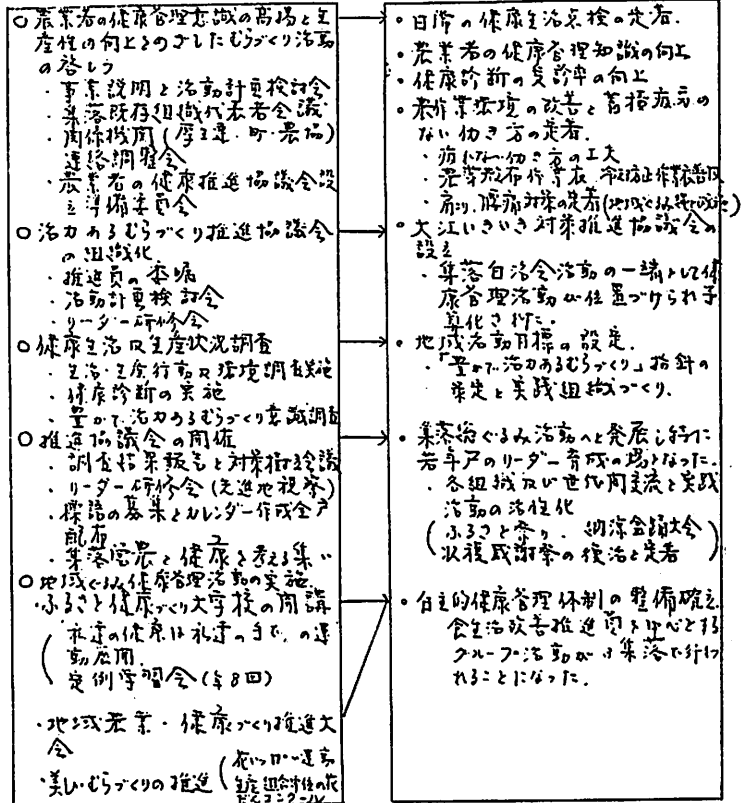 ○農業者の健康管理意識の高揚と生
産性の向上をめざしたむらづくり活動
の啓もう
・事業説明と活動計画検討会
・集落既存組織代表者会議
・関係機関(厚生連・町・農協)
連絡調整会
・農業者の健康推進協議会設
立準備委員会
○活力あるむらづくり推進協議会
の組織化
・推進員の委嘱
・活動計画検討会
・リーダー研修会
○健康生活及生産状況調査
・生活・生産行動及環境調査実施
・健康診断の実施
・豊かで活力あるむらづくり意識調査
○推進協議会の開催
・調査結果報告と対策検討会議
・リーダー研修会(先進地視察)
・標語の募集とカレンダー作成全戸
配布
・集落営農と健康を考える集い
○地域ぐるみ健康管理活動の実施
・ふるさと健康づくり大学校の開講
(私達の健康は私達の手で、の運
動展開.
定例学習会(年8回)
・地域農業・健康づくり推進大
会
・美しいむらづくりの推進(花いっぱい運動
生産組合対抗の花
だんコンクール
・日常の健康生活点検の定着.
・農業者の健康管理知識の向上
・健康診断の受診率の向上
・農作業環境の改善と蓄積疲労の
ない働き方の定着.
・疲れない働き方の工夫
・農薬散布作業衣
・肩こり、腰痛対策の定着(地域ぐるみ
・大江いきいき対策推進協議会の
設立
・集落自治会活動の一端として健
康管理活動が位置づけられ予
算化された.
・地域活動目標の設定.
・「豊かで活力あるむらづくり」指針の
策定と実践組織づくり.
・集落総ぐるみ活動へと発展し特に
若年戸のリーダー育成の場となった.
・各組織及び世代間交流と実践
活動の活性化
(ふるさと祭り、納涼盆踊大会)
収穫感謝祭の復活と定着
・自主的健康管理体制の整備確立
食生活改善推進員を中心とする
グループ活動が 集落で行わ
れることになった.